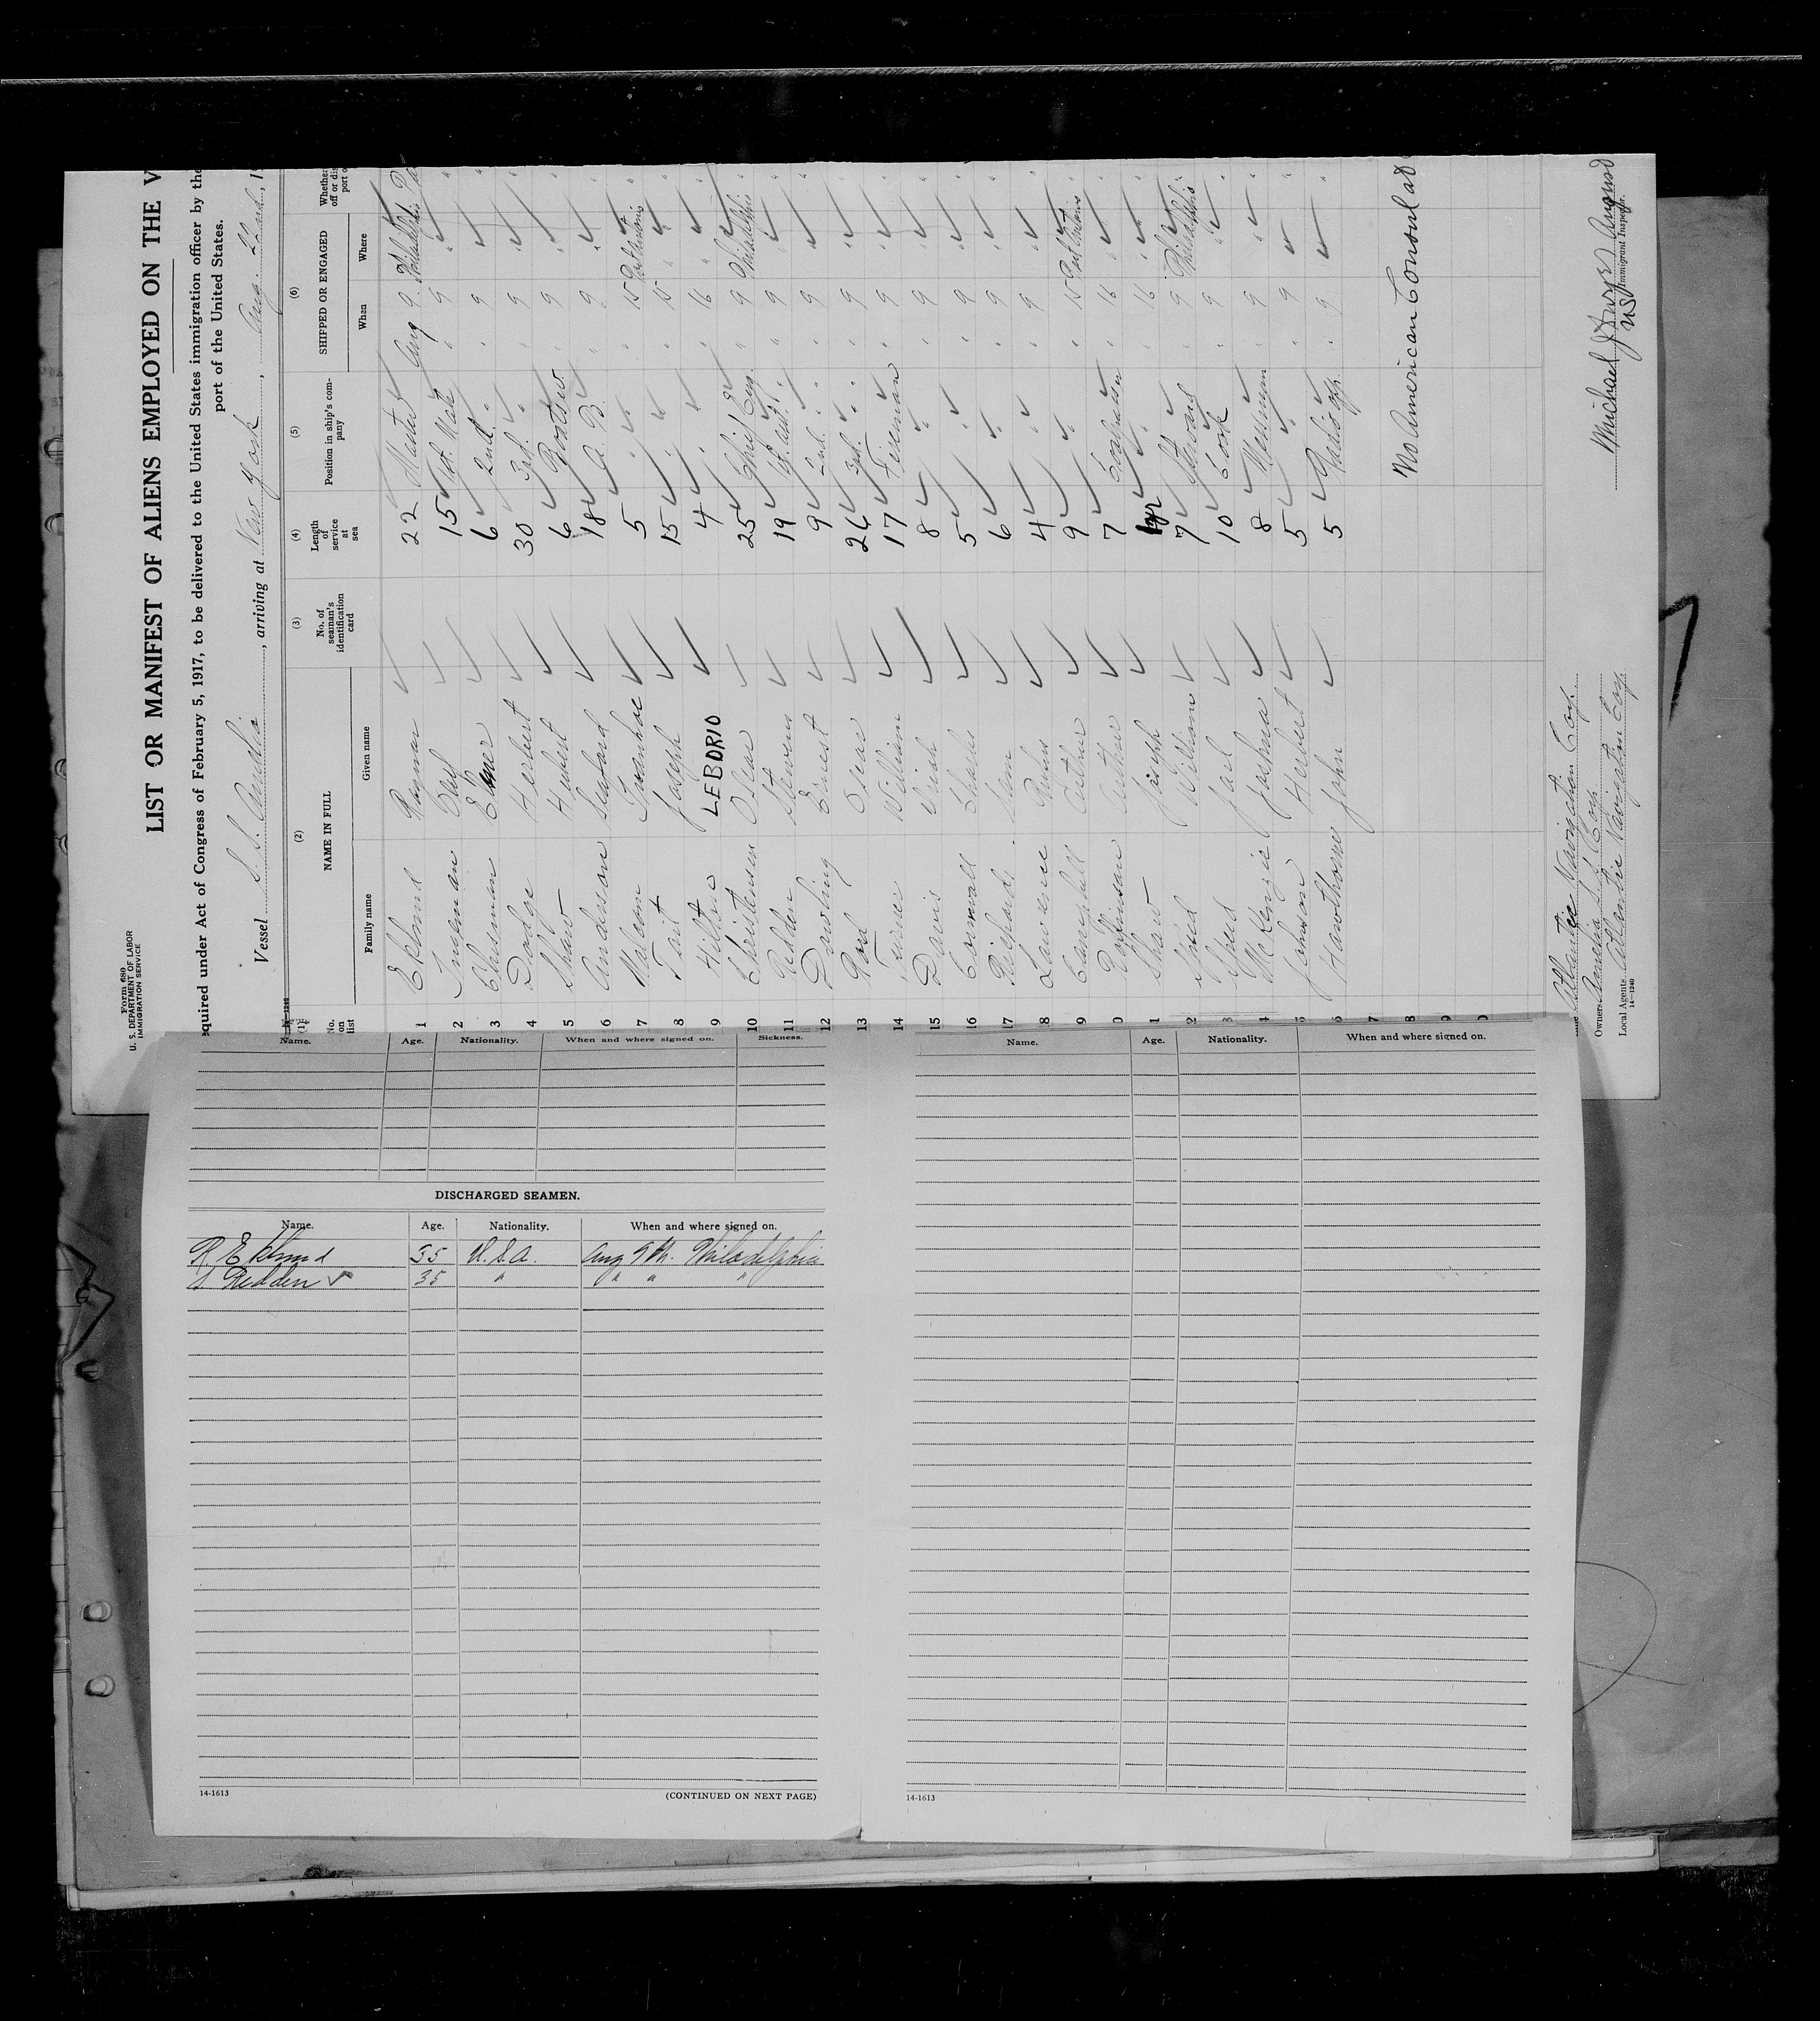 Form 680
U. S. DEPARTMENT OF LABOR
IMMIGRATION SERVICE
LIST OR MANIFEST OF ALIENS EMPLOYED ON THE V
equired under Act of Congress of February 5, 1917, to be delivered to the United States immigration officer by the
port of the United States.
Vessel S. S. , arriving at New York, Aug. 22nd, 1
(1) (2) (3) (4) (5) (6)
No. on list NAME IN FULL No. of seaman's identification card Length of service at sea Position in ship's company SHIPPED OR ENGAGED Whether
off or dis
port o
Family name Given name When Where
1 Eklund Ragnar 22 Master Aug 9 Philadelphia
2 Ingman 15 1st Mate " 9 "
3 Chesman Elmer 6 2nd " " 9 "
4 Dodge Herbert 30 3rd " " 9 "
5 Shaw Hubert 6 Boatsw. " 9 "
6 Anderson 18 A. B. " 9 "
7 Malcom Ivanhoe 5 " " 15
8 Tait Joseph 15 " " 15 "
9 Hilton LEBORIO 4 " " 16 "
10 Christensen Oscar 25 Chief Eng. " 9 Philadelphia
11 Redden Steven 19 1st asst. " " 9 "
12 Dowling Ernest 9 2nd " " " 9 "
13 Oscar 26 3rd " " " 9 "
14 Turner William 17 Fireman " 9 "
15 Davis Uriah 8 " " 9 "
16 Cornwall Charles 5 " " 9 "
17 Richards Sam 6 " " 9 "
8 Lawrence Rufus 4 " " 9 "
9 Campbell Arthur 9 " " 15
0 Arthur 7 Coalpasser " 16 "
1 Shaw Joseph 1yr " " 16 "
2 William 7 Steward " 9 Philadelphia
3 Speed 10 Cook " 9 "
4 McKenzie Joshua 8 Messman " 9 "
5 Johnson Herbert 5 " " 9 "
6 Hawthorne John 5 Radio Opp. " 9 "
7
8 No American Consul at
9
0
Atlantic Navigation Corp.
Owners America S. S. Corp.
Local Agents Atlantic Navigation Corp.
14—1240
Michael
US Immigrant Inspector.
Name. Age. Nationality. When and where signed on. Sickness.
DISCHARGED SEAMEN.
Name. Age. Nationality. When and where signed on.
R Eklund 35 U.S.A. Aug 9th. Philadelphia
S Redden 35 " " " "
14-1613 (CONTINUED ON NEXT PAGE)
Name. Age. Nationality. When and where signed on.
14-1613